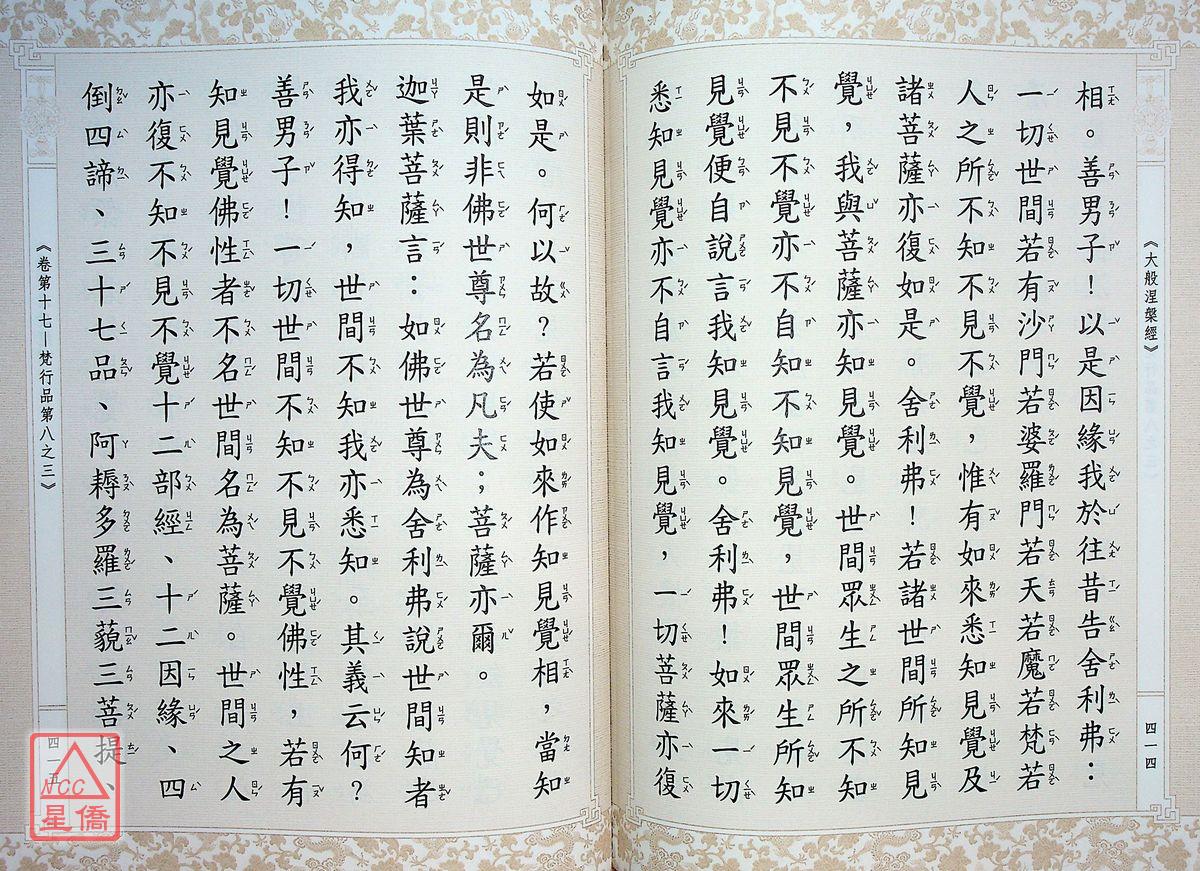 《大般涅槃經》
四一四
相。善男子！以是因緣我於往昔告舍利弗：
一切世間若有沙門若婆羅門若天若魔若梵若
人之所不知不見不覺，惟有如來悉知見覺及
諸菩薩亦復如是。舍利弗！若諸世間所知見
覺，我與菩薩亦知見覺。世間眾生之所不知
不見不覺亦不自知不知見覺，世間眾生所知
見覺便自說言我知見覺。舍利弗！如來一切
悉知見覺亦不自言我知見覺，一切菩薩亦復
如是。何以故？若使如來作知見覺相，當知
是則非佛世尊名為凡夫；菩薩亦爾。
迦葉菩薩言：如佛世尊為舍利弗說世間知者
我亦得知，世間不知我亦悉知。其義云何？
善男子！一切世間不知不見不覺佛性，若有
知見覺佛性者不名世間名為菩薩。世間之人
亦復不知不見不覺十二部經、十二因緣、四
倒四諦、三十七品、阿耨多羅三藐三菩提、
《卷第十七—梵行品第八之三》
四一五
NCC
星僑